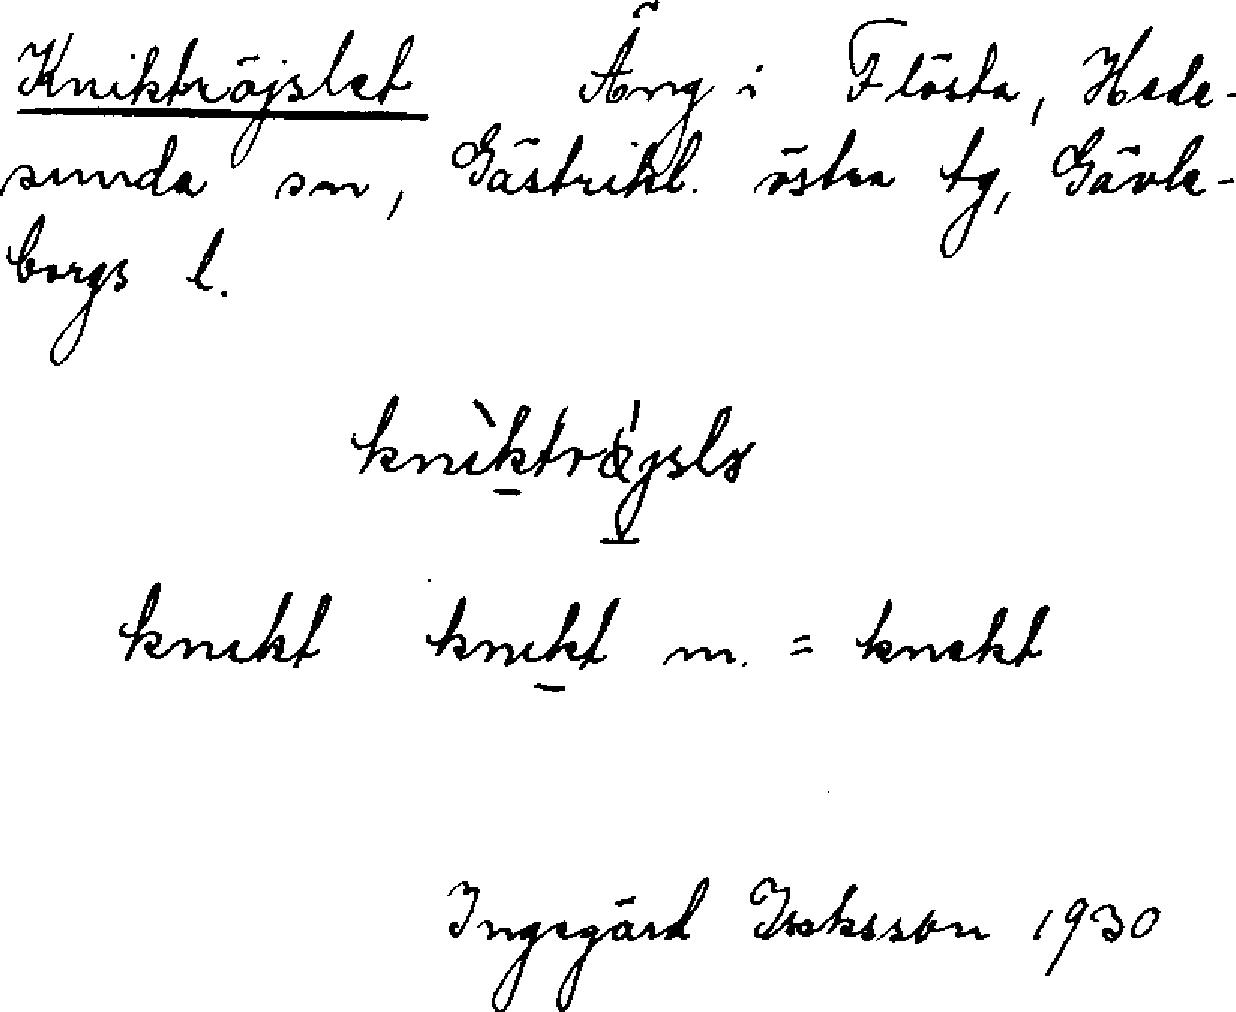 Kniktröjslet Äng i Flösta, Hede-
sunda sn, Gästrikl. östra tg, Gävle-
borgs l.
knìktrǿjslə
knikt knikt m. = knekt
Ingegärd Isaksson 1930